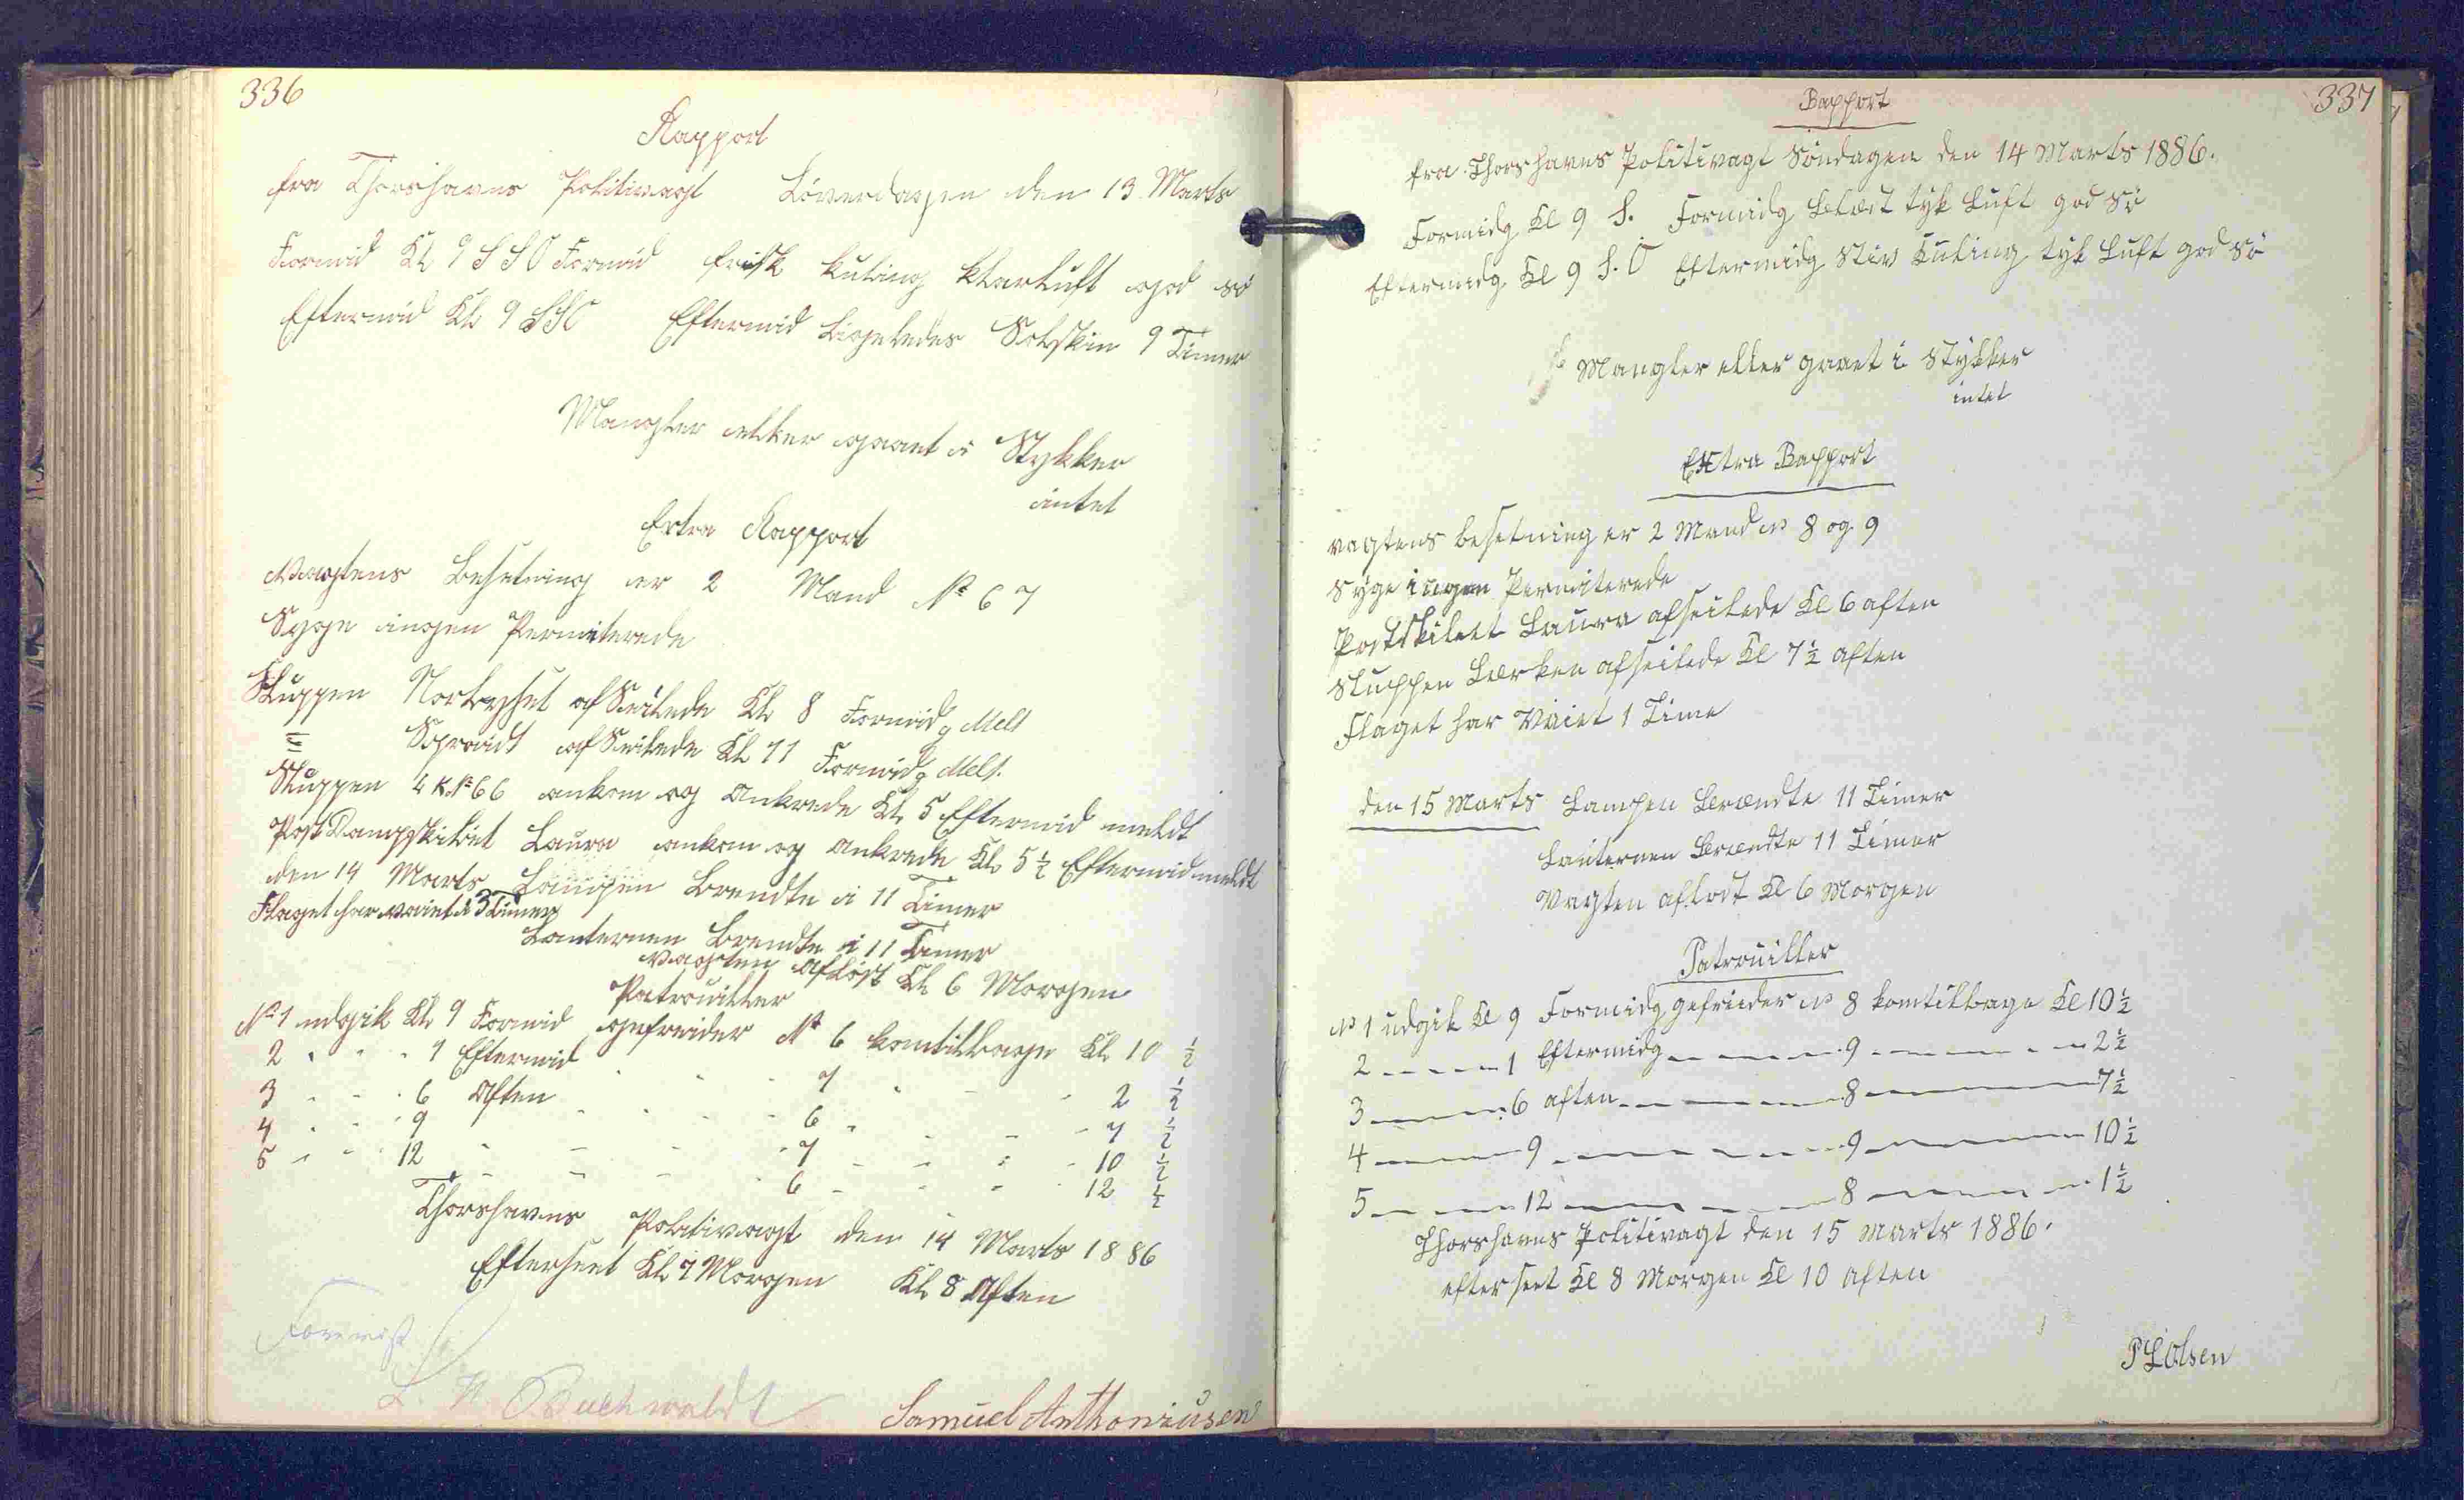 336
Rapport
fra Thorshavns Politivagt Löverdagen den 13 Marts
Formid Kl 9 SSO Formid frisk kuling klarluft god sö
Eftermid Kl 9 SSO Eftermid Ligeledes Solskin 9 Timer
Mangler eller gaaet i Stykker
intet
Extra Rapport
Vagtens Besetning er 2 Mand No 6 7
Syge ingen Permiterede
Sluppen Nordlyset afSeilede Kl 8 Formidg Melt
afSeilede Kl 11 Formidg Melt.
Sluppen 4 K No 66 ankom og Ankrede Kl 5 Eftermid meldt
PostDampskibet Laura ankom og ankrede Kl 5½ Eftermid meldt
den 14 Marts Lampen Brendte i 11 Timer
Flaget har vaiet i 3 Timer
Lanternen Brendte i 11 Timer
Vagten aflöst Kl 6 Morgen
Patrouiller
No 1 udgik Kl 9 Formid gefreider No 6 komtilbage Kl 10 ½
2 " " " 1 Eftermid " " " 7 " " " 2 ½
3 " " " 6 Aften " " " 6 " " " 7 ½
4 " " " 9 " " " 7 " " " 10 ½
5 " " " 12 " " " 6 " " " 12 ½
Thorshavns Politivagt den 14 Marts 1886
Efterseet Kl 7 Morgen Kl 8 Aften
Forevist
L. Buchwaldt Samuel Anthoniusen
337
Rapport
fra Thorshavns Politivagt Söndagen den 14 Marts 1886.
Formidg Kl 9 S. Formidg Labert tyk Luft god Sö
Eftermidg Kl 9 S.O Eftermidg Stiv Kuling tyk Luft god Sö
Mangler eller gaaet i Stykker
intet
Extra Rapport
vagtens besetning er 2 Mand No 8 og 9
Syge ingen Permiterede
Postskibet Laura afseilede Kl 6 aften
Sluppen Lerken afseilede Kl 7½ aften
Flaget har Vaiet 1 Time
den 15 Marts Lampen Brændte 11 Timer
Lanternen Brændte 11 Timer
Vagten aflöst Kl 6 Morgen
Patrouiller
No 1 udgik Kl 9 Formidg gefrieder No 8 komtilbage Kl 10½
2 - - - - 1 Eftermidg - - - - 9 - - - - 2½
3 - - - - 6 aften - - - - 8 - - - - 7½
4 - - - - 9 - - - - 9 - - - - 10½
5 - - - - 12 - - - - 8 - - - - 1½
Thorshavns Politivagt den 15 Marts 1886.
efterseet Kl 8 Morgen Kl 10 Aften
P L Olsen